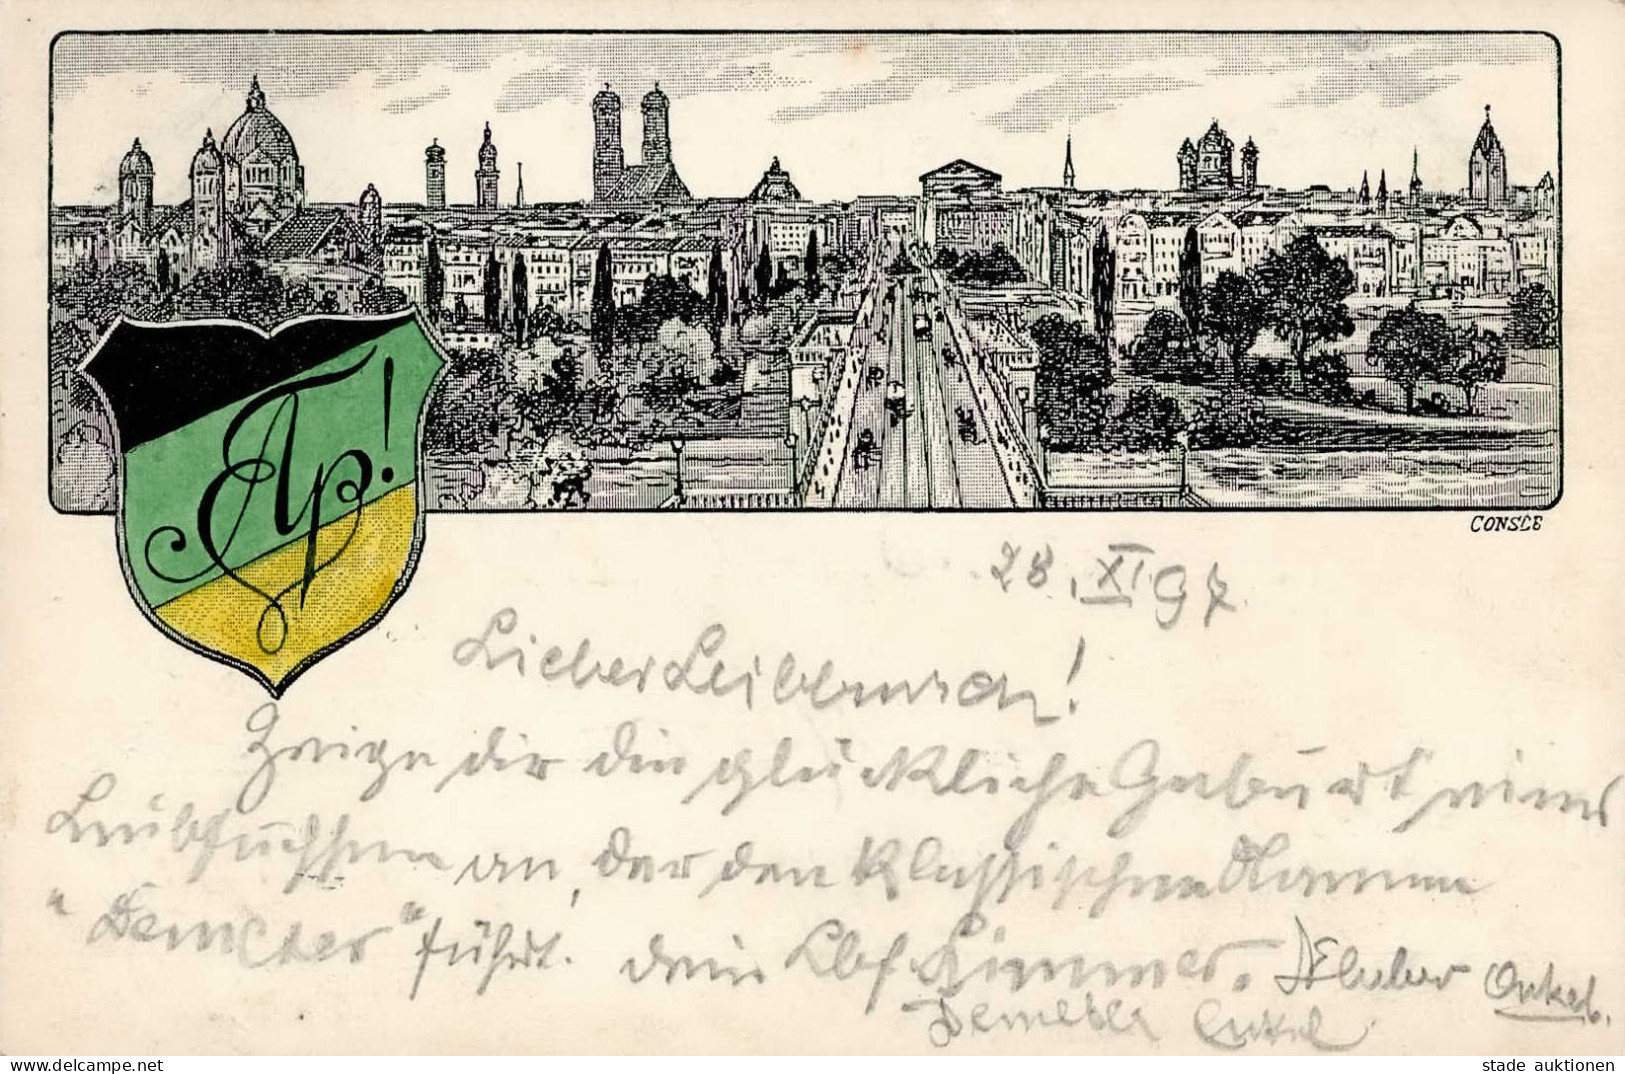 Ap!
CONSÉE
28. XI 97.
Lieber Leibbursch!
Zeige dir die glückliche Geburt eines
Leibfuchsen an, der den klassischen Namen
"Demeter" führt. Dein Lbf
Onkel.
stade auktionen